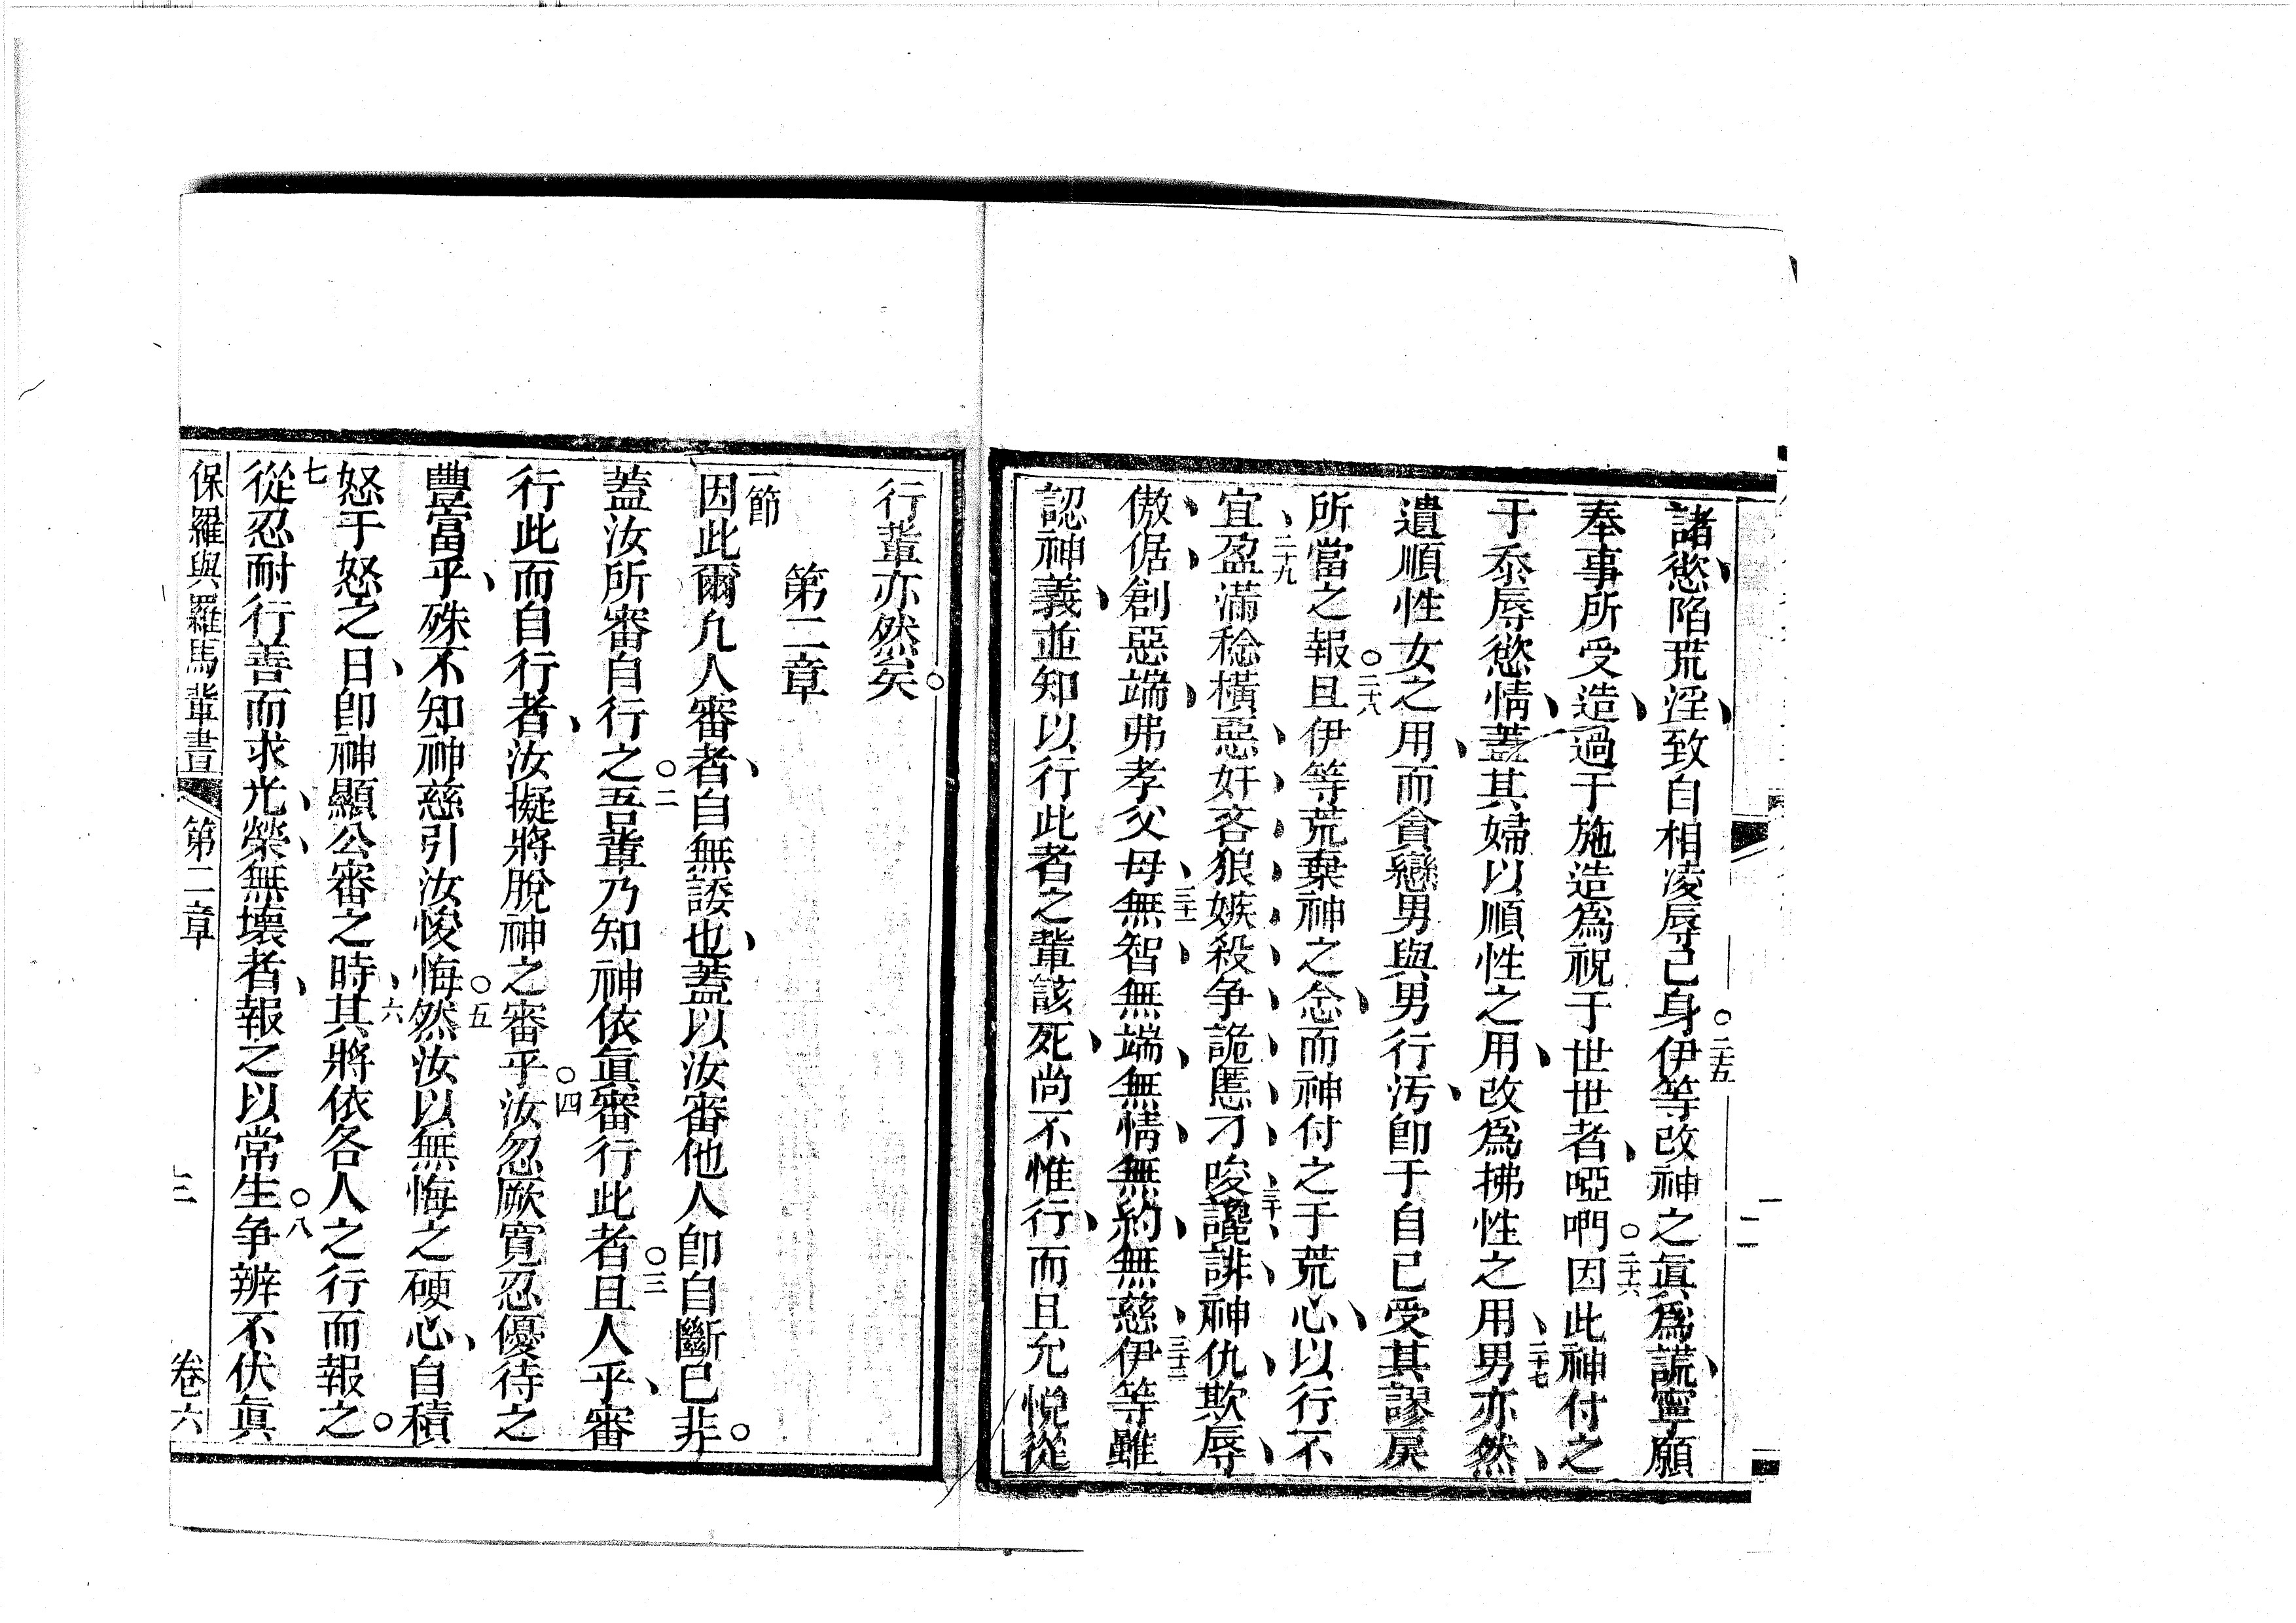 諸慾、陷荒淫、致自相凌辱己身○二十五伊等改神之眞爲謊、寧願
奉事所受造、過于施造爲祝于世世者、啞嘝○二十六因此神付之
于忝辱慾情、蓋其婦以順性之用、改爲拂性之用、二十七男亦然、
遺順性女之用、而貪戀男與男行汚、卽于自己受其謬戾
所當之報○二十八且伊等荒棄神之念、而神付之于荒心、以行不
宜、二十九盈滿稔橫惡、奸、吝、狼、嫉、殺、争、詭、慝、刁唆、三十讒、誹、神仇、欺辱、
傲、倨、創惡端、弗孝父母、三十一無智、無端、無情、無約、無慈、三十二伊等雖
認神義、並知以行此者之輩該死、尚不惟行、而且允悅從
行輩亦然矣○
第二章
一節因此爾凢人審者、自無諉也、蓋以汝審他人卽自斷己非○
蓋汝所審自行之○二吾輩乃知神依眞審行此者○三且人乎、審
行此而自行者、汝擬將脫神之審乎○四汝忽厥寬忍優待之
豐富乎、殊不知神慈引汝悛悔○五然汝以無悔之硬心、自積
怒于怒之日、卽神顯公審之時、六其將依各人之行而報之○
七從忍耐行善而求光、榮、無壞者、報之以常生○八争辨不伏眞
保羅與羅馬輩書 第二章 三 卷六